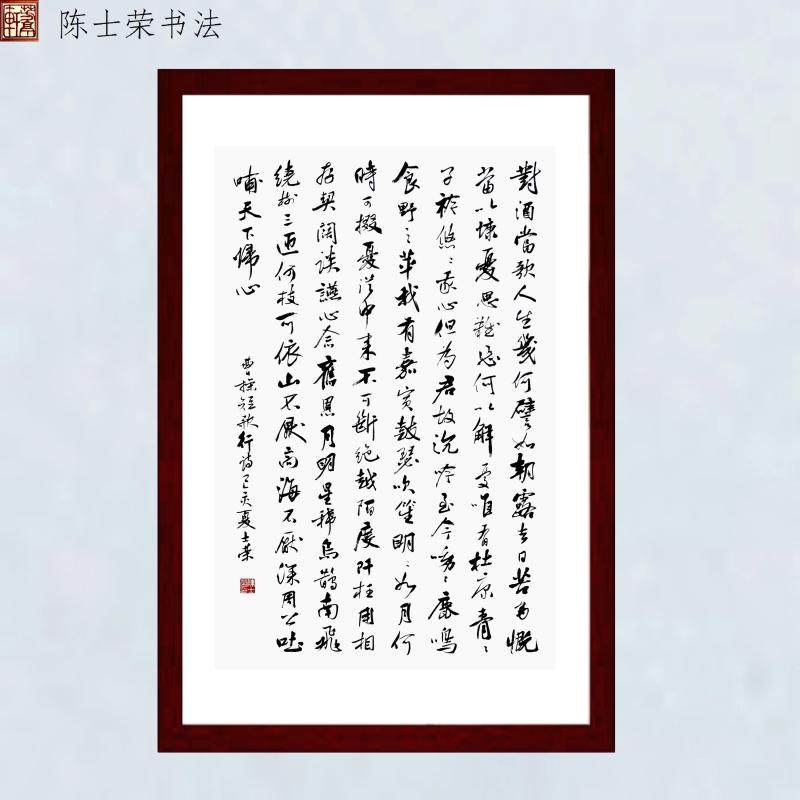 陈士荣书法
對酒當歌人生幾何譬如朝露去日苦多慨
當以慷憂思難忘何以解憂唯有杜康青〻
子衿悠〻我心但為君故沉吟至今呦〻鹿鳴
食野之苹我有嘉賓鼓瑟吹笙明〻如月何
時可掇憂從中來不可斷絕越陌度阡枉用相
存契闊談讌心念舊恩月明星稀烏鵲南飛
繞樹三匝何枝可依山不厭高海不厭深周公吐
哺天下歸心
曹操短歌行詩己亥夏士榮